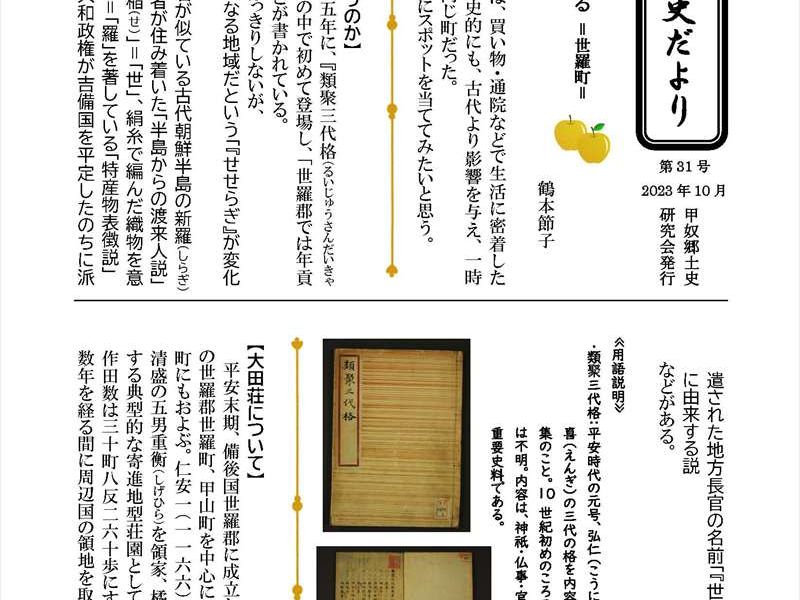 史だより
第31号
2023年10月
甲奴郷土史
研究会発行
る =世羅町=
鶴本節子
は、買い物・通院などで生活に密着した
史的にも、古代より影響を与え、一時
じ町だった。
にスポットを当ててみたいと思う。
うのか】
五年に、『類聚三代格(るいじゅうさんだいきゃ
の中で初めて登場し、「世羅郡では年貢
とが書かれている。
っきりしないが、
なる地域だという「『せせらぎ』が変化
が似ている古代朝鮮半島の新羅(しらぎ)
者が住み着いた「半島からの渡来人説」
稲(せ)」=「世」、絹糸で編んだ織物を意
=「羅」を著している「特産物表徴説」
大和政権が吉備国を平定したのちに派
遣された地方長官の名前「『世
に由来する説
などがある。
≪用語説明≫
・類聚三代格:平安時代の元号、弘仁(こうに
喜(えんぎ)の三代の格を内容
集のこと。10世紀初めのころ
は不明。内容は、神祇・仏事・官
重要史料である。
類聚三代格
【大田荘について】
平安末期、備後国世羅郡に成立
の世羅郡世羅町、甲山町を中心に
町にもおよぶ。仁安一(一一六六)
清盛の五男重衡(しげひら)を領家、橘
する典型的な寄進地型荘園として
作田数は三十町八反二六十歩にす
数年を経る間に周辺国の領地を取